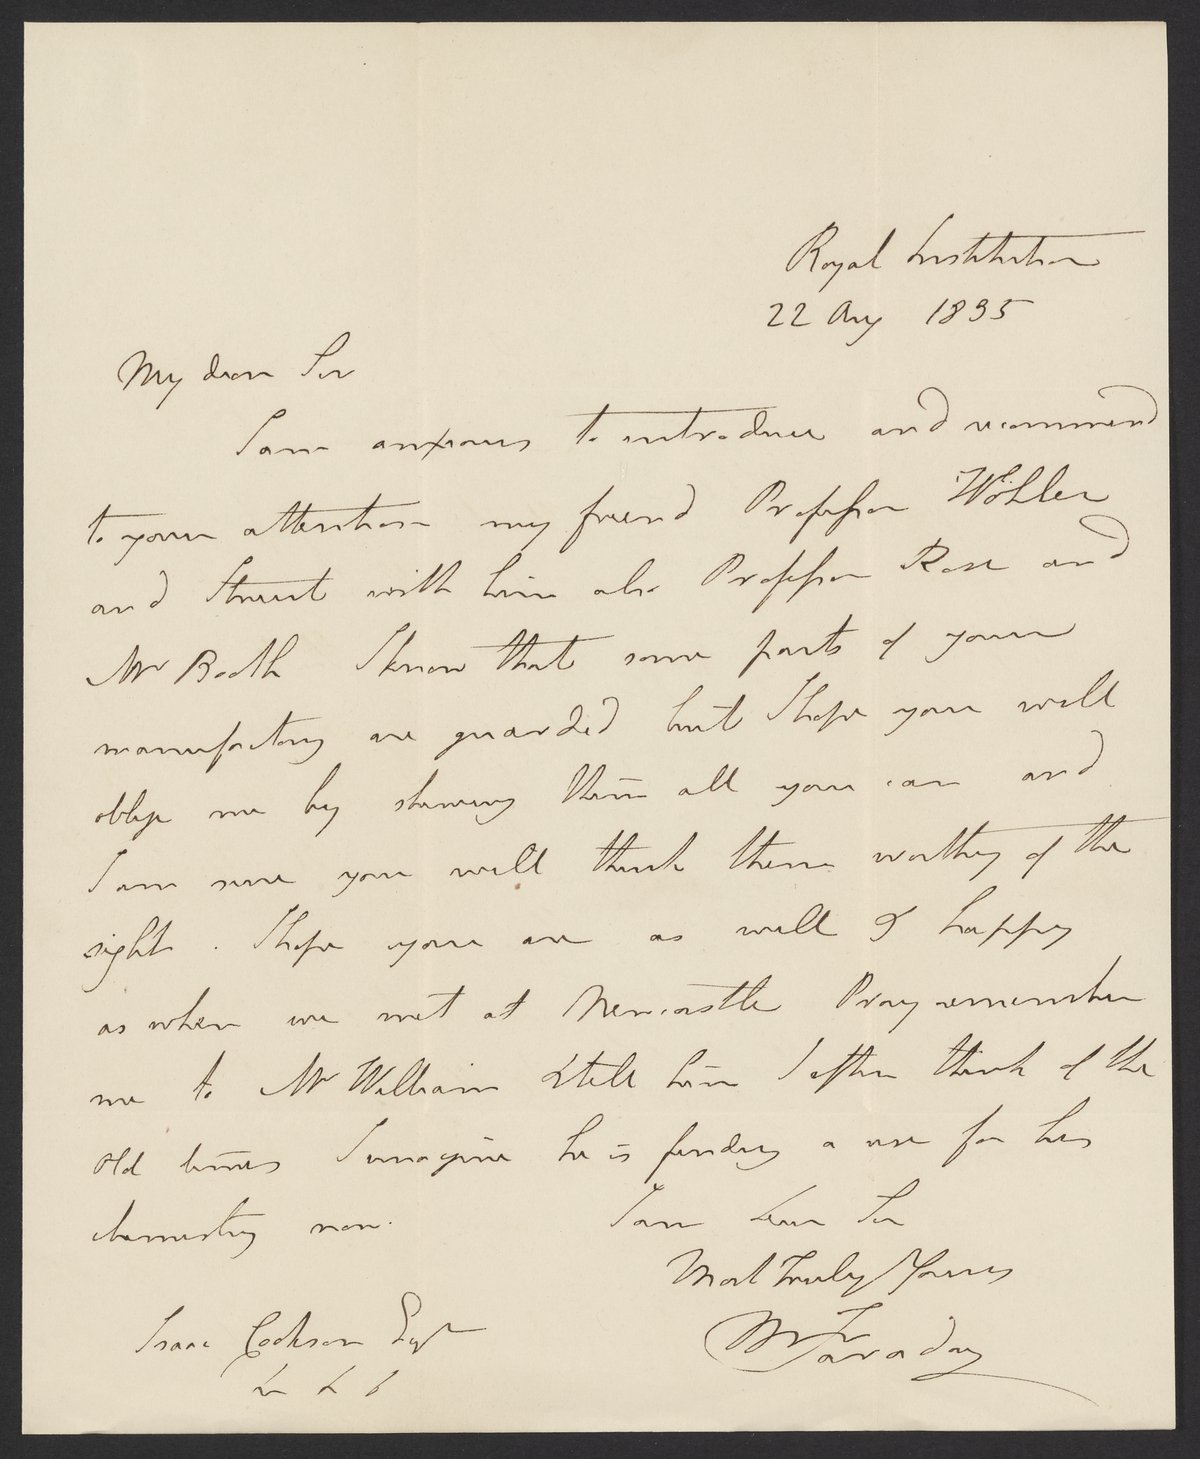 Royal Institution
22 Aug 1835
My dear Sir
I am anxious to introduce and recommend
to your attention my friend Professor Wöhler
and with him also Professor Rose and
Mr Booth I know that some parts of your
manufactory are guarded but I hope you will
oblige me by shewing them all you can and
I am sure you will think them worthy of the
sight. I hope you are as well & happy
as when we met at Newcastle Pray remember
me to Mr William & tell him I often think of the
old times I imagine he is finding a use for his
chemistry now.
I am dear Sir
Most Truly Yours
M Faraday
Isaac Cookson Esqr